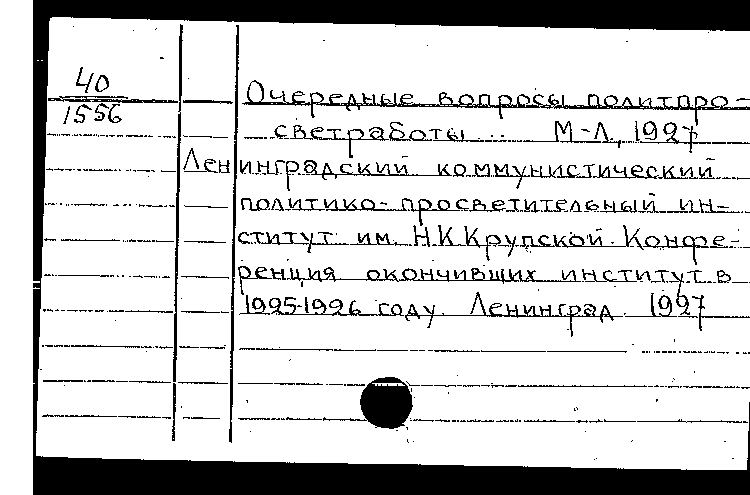 40
1556
Очередные вопросы политпро-
светработы ... М-Л, 1927
Ленинградский коммунистический
политико-просветительный ин-
ститут им. Н.К Крупской. Конфе-
ренция окончивших институт в
1925-1926 году. Ленинград. 1927